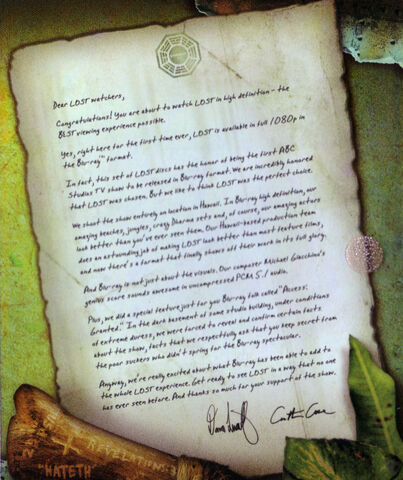 Dear LOST watchers,
Congratulations! You are about to watch LOST in high definition - the
BEST viewing experience possible.
Yes, right here for the first time ever, LOST is available in full 1080p in
the Blu-ray™ format.
In fact, this set of LOST discs has the honor of being the first ABC
Studios TV show to be released in Blu-ray format. We are incredibly honored
that LOST was chosen. But we like to think LOST was the perfect choice.
We shoot the show entirely on location in Hawaii. In Blu-ray high definition, our
amazing beaches, jungles, crazy Dharma sets and, of course, our amazing actors
look better than you've ever seen them. Our Hawaii-based production team
does an astounding job of making LOST look better than most feature films,
and now there's a format that finally shows off their work in its full glory.
And Blu-ray is not just about the visuals. Our composer Michael Giacchino's
genius score sounds awesome in uncompressed PCM 5.1 audio.
Plus, we did a special feature just for you Blu-ray folk called "Access:
Granted." In the dark basement of some studio building, under conditions
of extreme duress, we were forced to reveal and confirm certain facts
about the show, facts that we respectfully ask that you keep secret from
the poor suckers who didn't spring for the Blu-ray spectacular.
Anyway, we're really excited about what Blu-ray has been able to add to
the whole LOST experience. Get ready to see LOST in a way that no one
has ever seen before. And thanks so much for your support of the show.
REVELATIONS:3
"HATETH